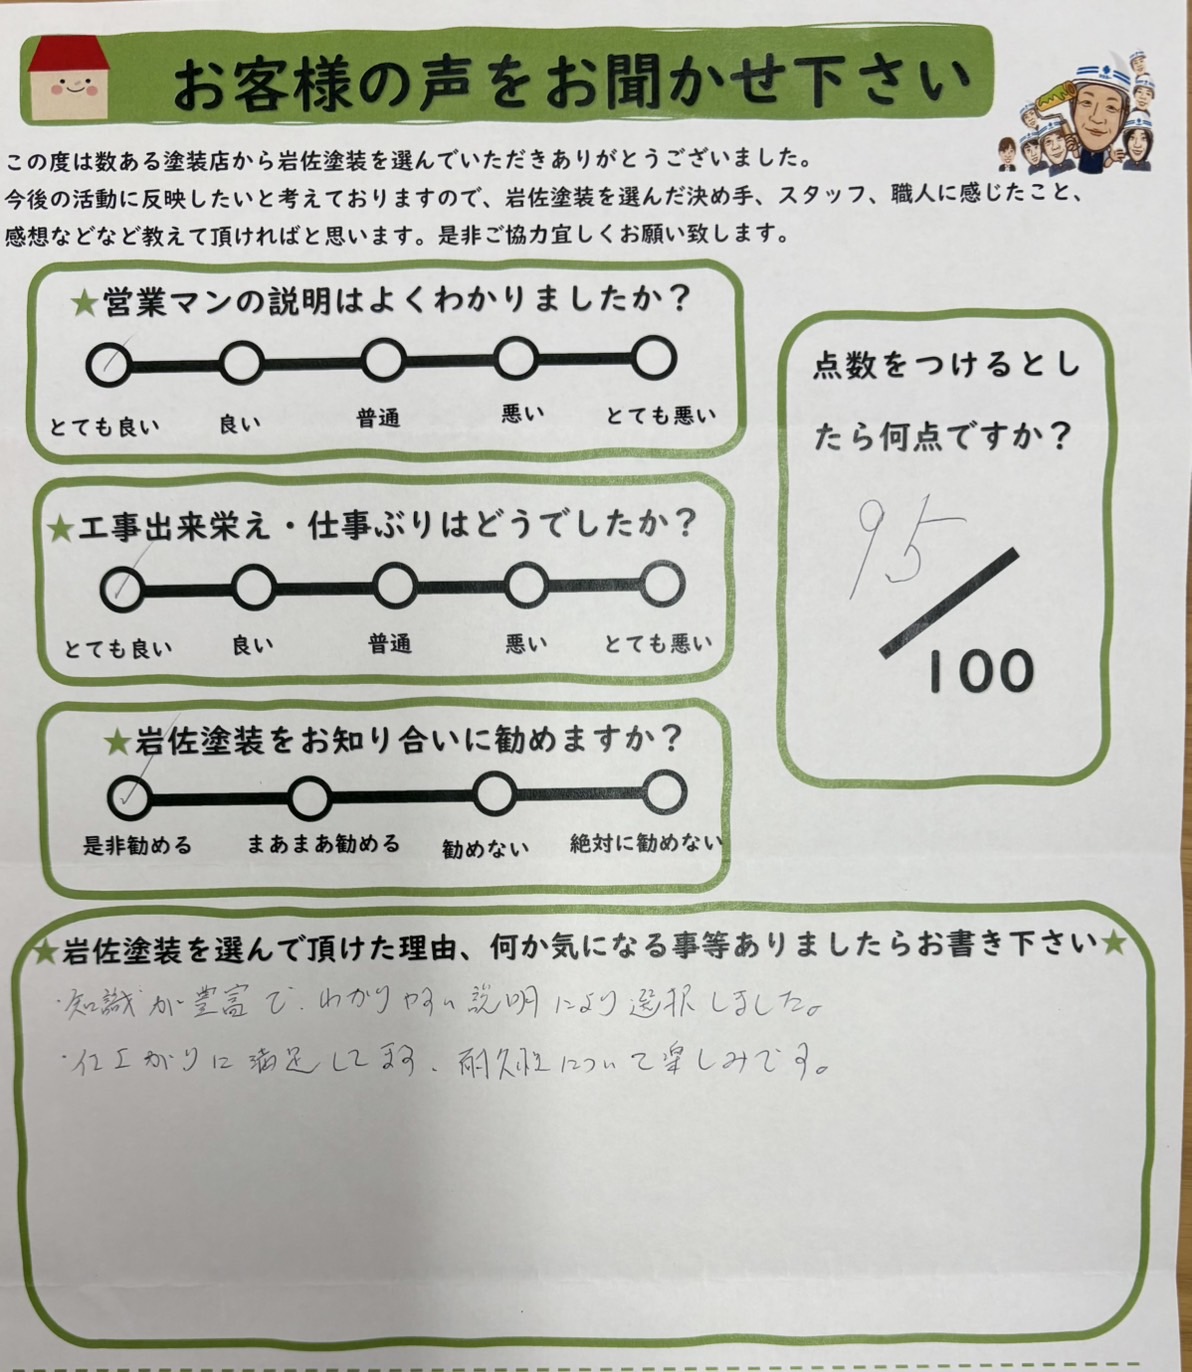 お客様の声をお聞かせ下さい
この度は数ある塗装店から岩佐塗装を選んでいただきありがとうございました。
今後の活動に反映したいと考えておりますので、岩佐塗装を選んだ決め手、スタッフ、職人に感じたこと、
感想などなど教えて頂ければと思います。是非ご協力宜しくお願い致します。
★営業マンの説明はよくわかりましたか？
とても良い 良い 普通 悪い とても悪い
★工事出来栄え・仕事ぶりはどうでしたか？
とても良い 良い 普通 悪い とても悪い
★岩佐塗装をお知り合いに勧めますか？
是非勧める まあまあ勧める 勧めない 絶対に勧めない
点数をつけるとし
たら何点ですか？
95
100
★岩佐塗装を選んで頂けた理由、何か気になる事等ありましたらお書き下さい★
・知識が豊富で、わかりやすい説明により選択しました。
・仕上がりに満足してます、耐久性について楽しみです。